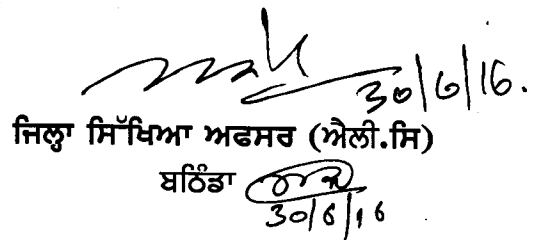 30/6/16.
ਜਿਲ੍ਹਾ ਸਿੱਖਿਆ ਅਫਸਰ (ਐਲੀ.ਸਿ)
ਬਠਿੰਡਾ
30/6/16